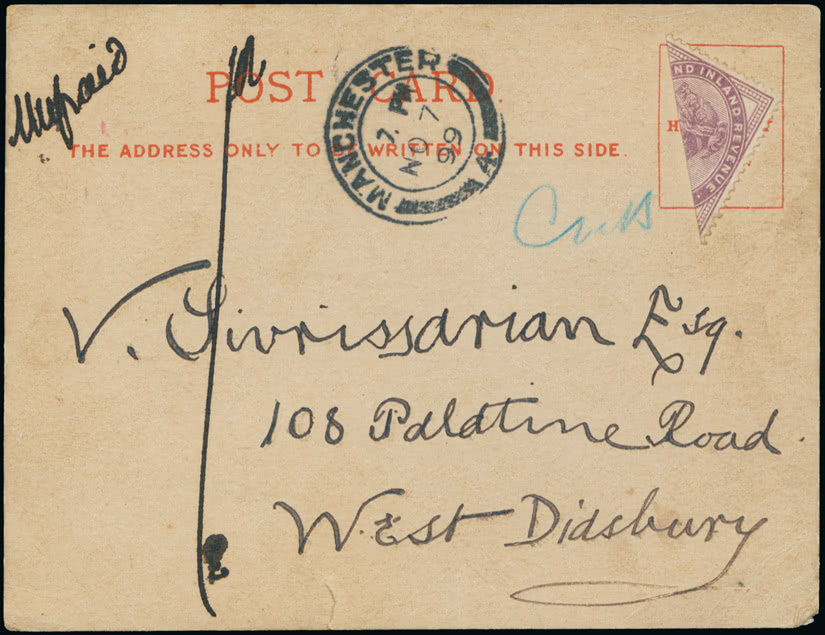 Unpaid
POST CARD.
THE ADDRESS ONLY TO BE WRITTEN ON THIS SIDE.
MANCHESTER
7. PM
NO 7
99
ND INLAND REVENUE
V. Sivrissarian Esq.
108 Palatine Road.
West Didsbury